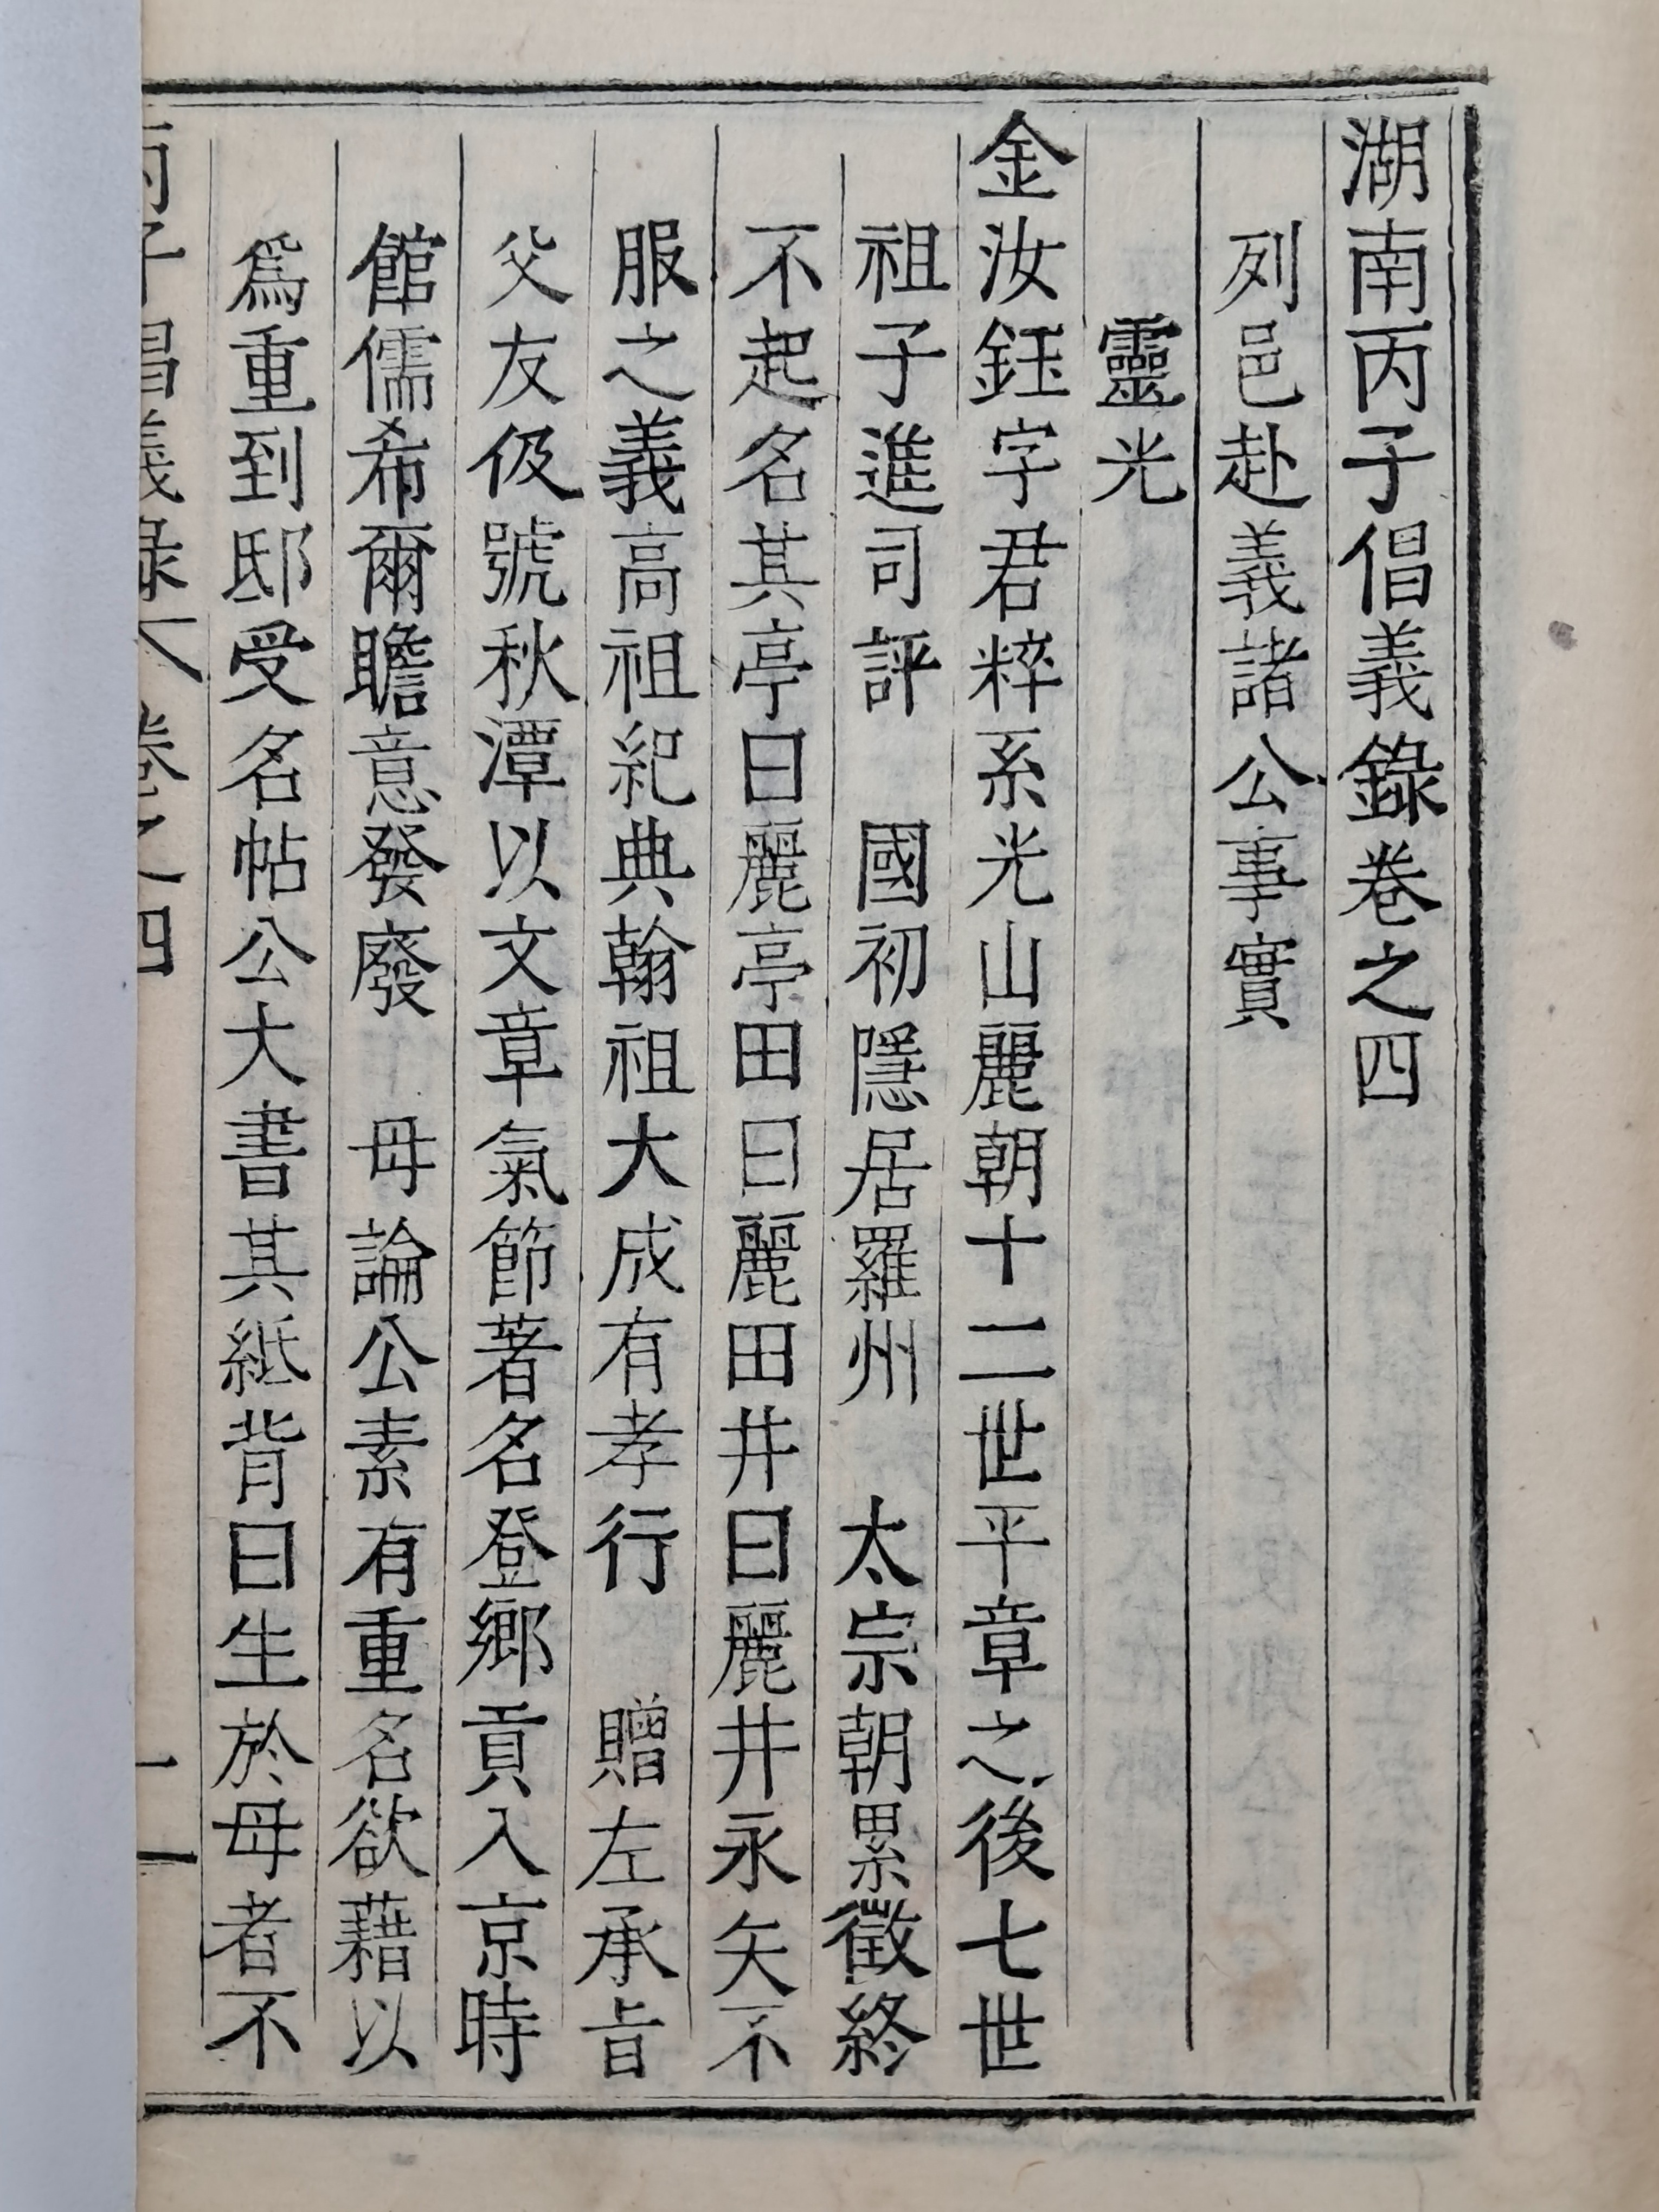 湖南丙子倡義錄卷之四
列邑赴義諸公事實
靈光
金汝鈺字君粹系光山麗朝十二世平章之後七世
祖子進司評　國初隱居羅州　太宗朝累徵終
不起名其亭曰麗亭田曰麗田井曰麗井永矢不
服之義高祖紀典翰祖大成有孝行　贈左承旨
父友伋號秋潭以文章氣節著名登鄉貢入京時
館儒希爾瞻意發廢　母論公素有重名欲藉以
爲重到邸受名帖公大書其紙背曰生於母者不
丙子倡義錄 卷之四 一